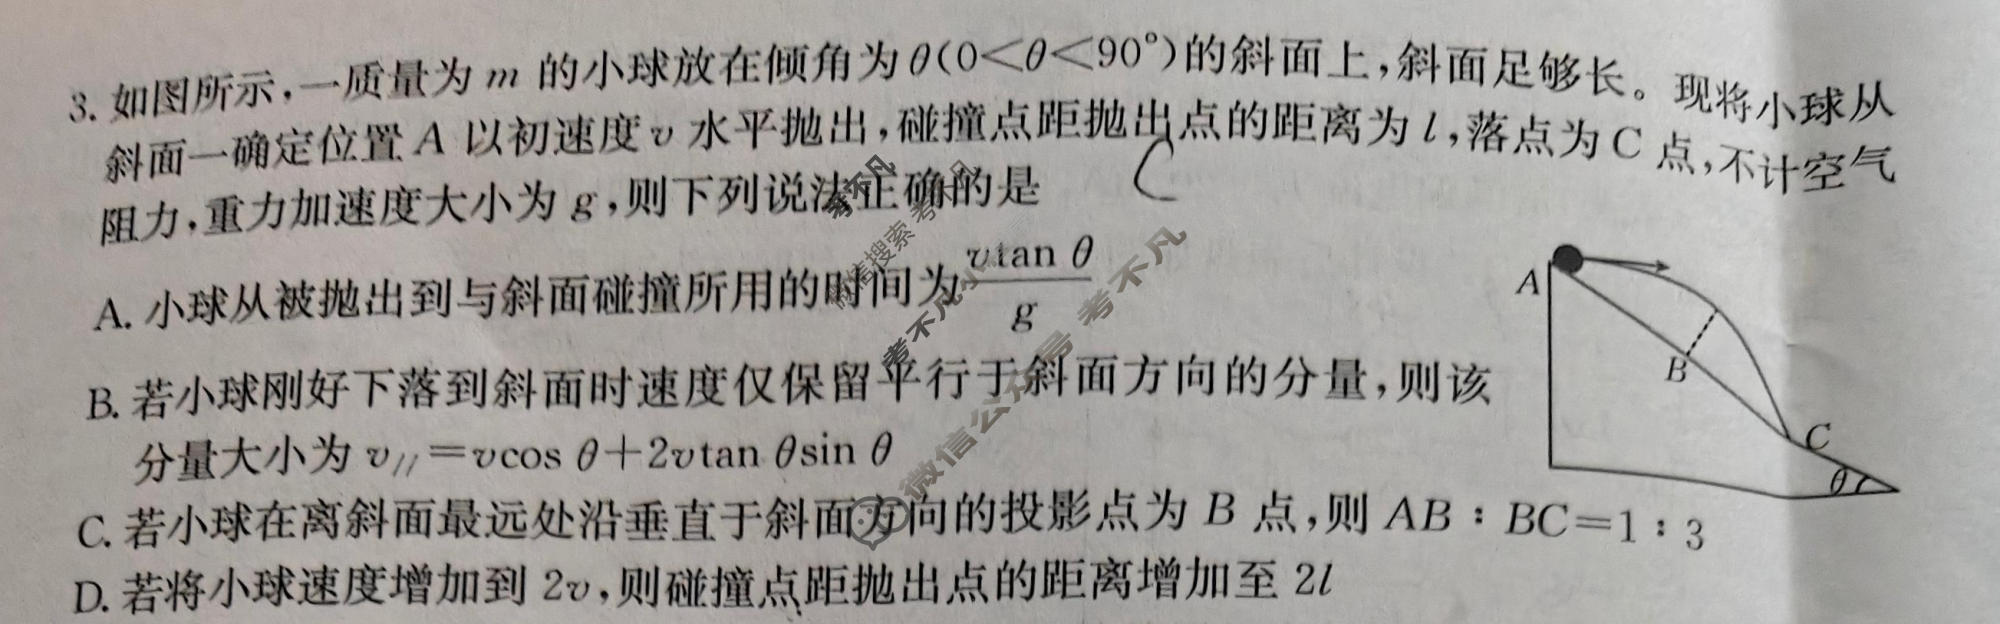 3. 如图所示,一质量为 m 的小球放在倾角为 θ(0<θ<90°)的斜面上,斜面足够长。现将小球从
斜面一确定位置 A 以初速度 v 水平抛出,碰撞点距抛出点的距离为 l,落点为 C 点,不计空气
阻力,重力加速度大小为 g,则下列说法正确的是
C
A. 小球从被抛出到与斜面碰撞所用的时间为 vtan θ/g
B. 若小球刚好下落到斜面时速度仅保留平行于斜面方向的分量,则该
分量大小为 v//=vcos θ+2vtan θsin θ
C. 若小球在离斜面最远处沿垂直于斜面方向的投影点为 B 点,则 AB:BC=1:3
D. 若将小球速度增加到 2v,则碰撞点距抛出点的距离增加至 2l
A
B
C
θ
考不凡
微信搜索
微信公众号 考不凡